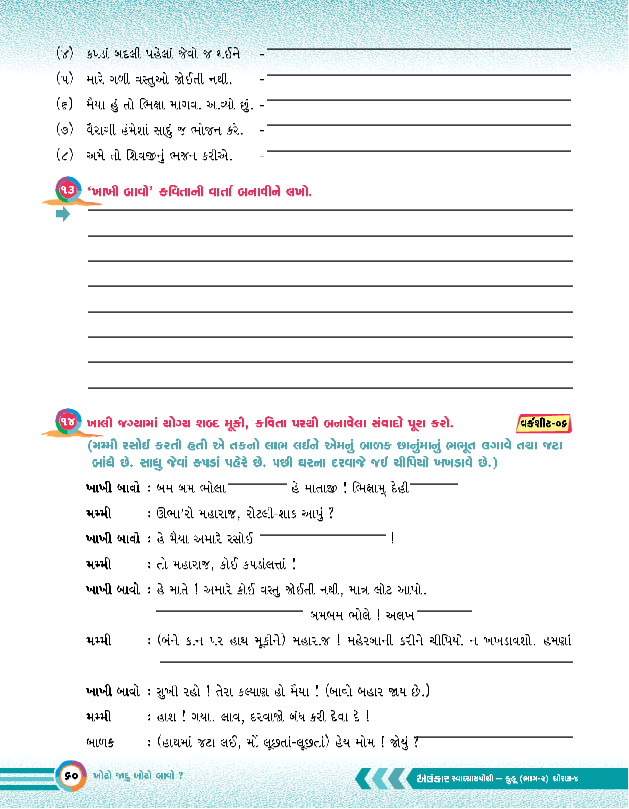 (૪) કપડાં બદલી પહેલાં જેવો જ થઈને -
(૫) મારે ગળી વસ્તુઓ જોઈતી નથી. -
(૬) મૈયા હું તો ભિક્ષા માગવા આવ્યો છું. -
(૭) વૈરાગી હંમેશાં સાદું જ ભોજન કરે. -
(૮) અમે તો શિવજીનું ભજન કરીએ. -
૧૩ ‘ખાખી બાવો’ કવિતાની વાર્તા બનાવીને લખો.
૧૪ ખાલી જગ્યામાં યોગ્ય શબ્દ મૂકી, કવિતા પરથી બનાવેલા સંવાદો પૂરા કરો. વર્કશીટ-૦૬
(મમ્મી રસોઈ કરતી હતી એ તકનો લાભ લઈને એમનું બાળક છાનુંમાનું ભભૂત લગાવે તથા જટા
બાંધે છે. સાધુ જેવાં કપડાં પહેરે છે. પછી ઘરના દરવાજે જઈ ચીપિયો ખખડાવે છે.)
ખાખી બાવો : બમ બમ ભોલા હે માતાજી ! ભિક્ષામ્ દેહી
મમ્મી : ઊભા'રો મહારાજ, રોટલી-શાક આપું ?
ખાખી બાવો : હે મૈયા અમારે રસોઈ !
મમ્મી : તો મહારાજ, કોઈ કપડાંલત્તાં !
ખાખી બાવો : હે માતે ! અમારે કોઈ વસ્તુ જોઈતી નથી, માત્ર લોટ આપો.
બમબમ ભોલે ! અલખ
મમ્મી : (બંને કાન પર હાથ મૂકીને) મહારાજ ! મહેરબાની કરીને ચીપિયો ન ખખડાવશો. હમણાં
ખાખી બાવો : સુખી રહો ! તેરા કલ્યાણ હો મૈયા ! (બાવો બહાર જાય છે.)
મમ્મી : હાશ ! ગયા. લાવ, દરવાજો બંધ કરી દેવા દે !
બાળક : (હાથમાં જટા લઈ, મોં લૂછતાં-લૂછતાં) હેય મોમ ! જોયું ?
૬૦ ખોટો જાદુ ખોટો બાવો ? અલંકાર સ્વાધ્યાયપોથી – કુહૂ (ભાગ-૨) ધોરણ-૪